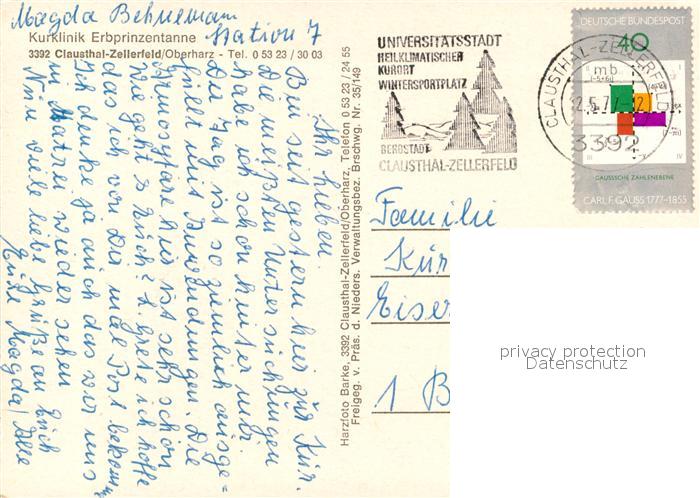 Magda Behnemann
Station 7
Kurklinik Erbprinzentanne
3392 Clausthal-Zellerfeld/Oberharz - Tel. 0 53 23 / 30 03
Ihr Lieben.
Bin seit gestern hier zur Kur.
Die meißten Untersuchungen
habe ich schon hinter mir
Der Tag ist so ziemlich ausge-
füllt mit Anwendungen. Die
Atmosphäre hier ist sehr schön
Wie geht es Euch? L. Grete ich hoffe
das ich von Dir mal Post bekomme
Ich denke ja auch das wir uns
in wieder sehen
Nun viele liebe Grüße an Euch
Alle Eure Magda
Harzfoto Barke, 3392 Clausthal-Zellerfeld/Oberharz, Telefon 0 53 23 / 24 55
Freigeg. v. Präs. d. Nieders. Verwaltungsbez. Brschwg. Nr. 35/149
UNIVERSITÄTSSTADT
HEILKLIMATISCHER
KURORT
WINTERSPORTPLATZ
BERGSTADT
CLAUSTHAL-ZELLERFELD
CLAUSTHAL-ZELLERFELD
3392
DEUTSCHE BUNDESPOST
40
GAUSSSCHE ZAHLENEBENE
CARL F. GAUSS 1777-1855
Familie
Kür
Eiser
1 B
privacy protection
Datenschutz